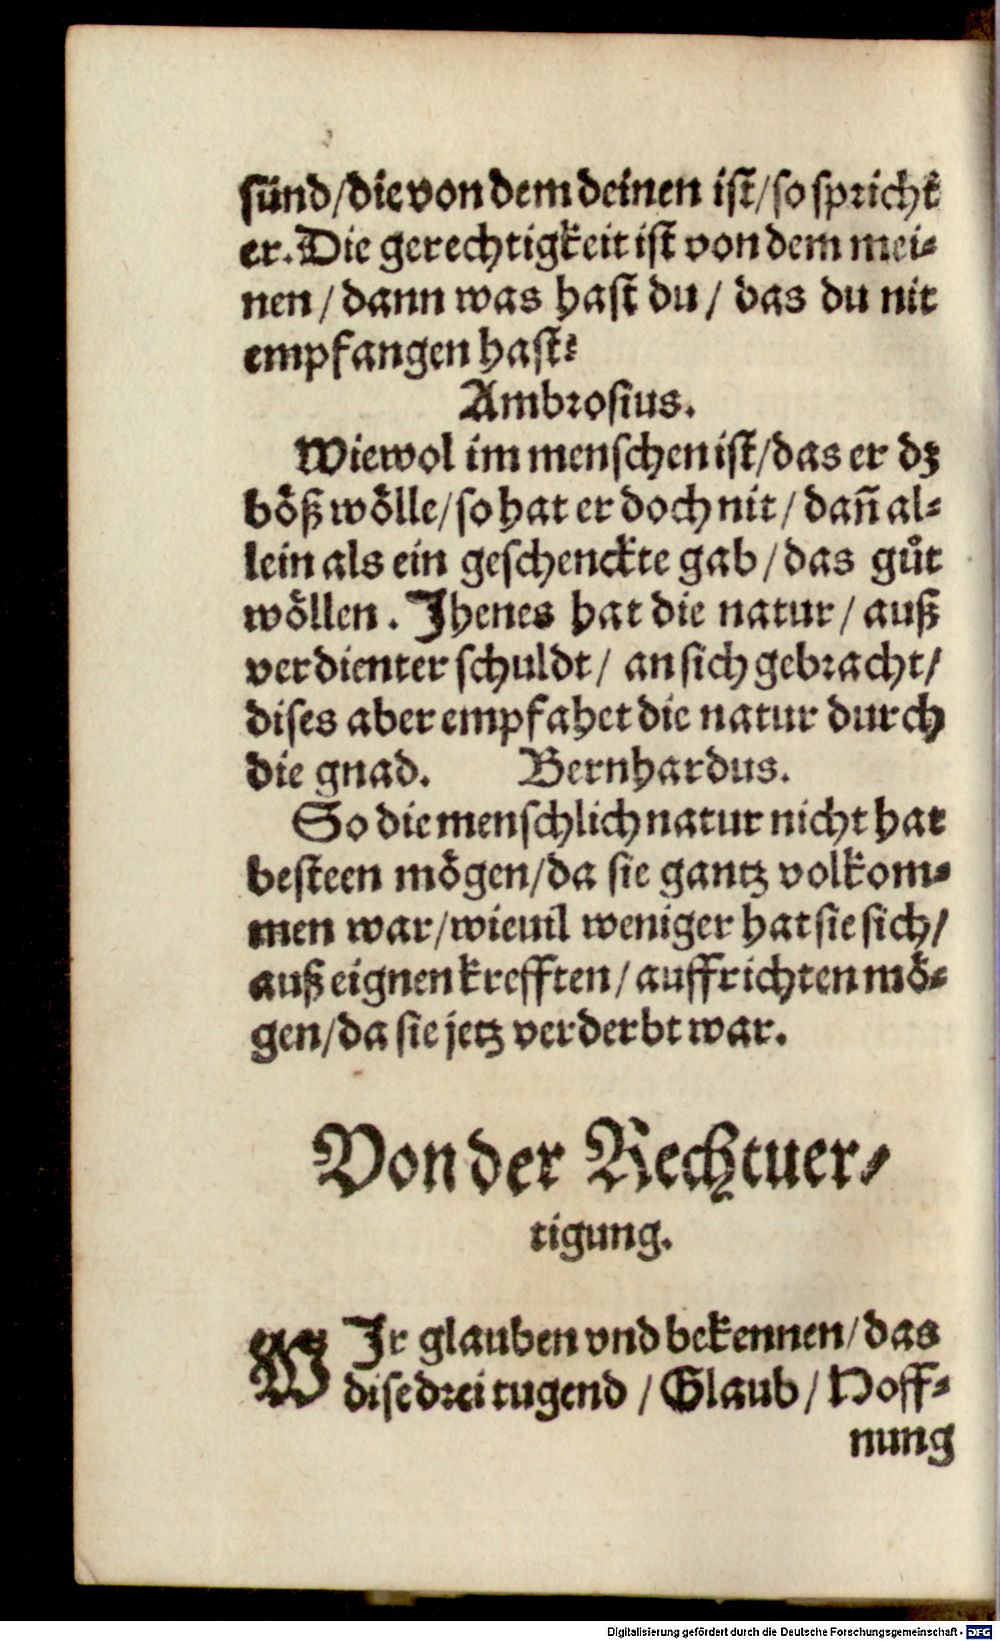 sünd/die von dem deinen ist/so spricht
er. Die gerechtigkeit ist von dem mei⸗
nen/dann was hast du/das du nit
empfangen hast?
Ambrosius.
Wiewol im menschen ist/das er dz
böß wölle/so hat er doch nit/dañ al⸗
lein als ein geschenckte gab/das gůt
wöllen. Jhenes hat die natur/auß
verdienter schuldt/an sich gebracht/
dises aber empfahet die natur durch
die gnad. Bernhardus.
So die menschlich natur nicht hat
besteen mögen/da sie gantz volkom⸗
men war/wieuil weniger hat sie sich/
auß eignen krefften/auffrichten mö⸗
gen/da sie jetz verderbt war.
Von der Rechtuer⸗
tigung.
WJr glauben vnd bekennen/das
dise drei tugend/Glaub/Hoff⸗
nung
Digitalisierung gefördert durch die Deutsche Forschungsgemeinschaft - DFG